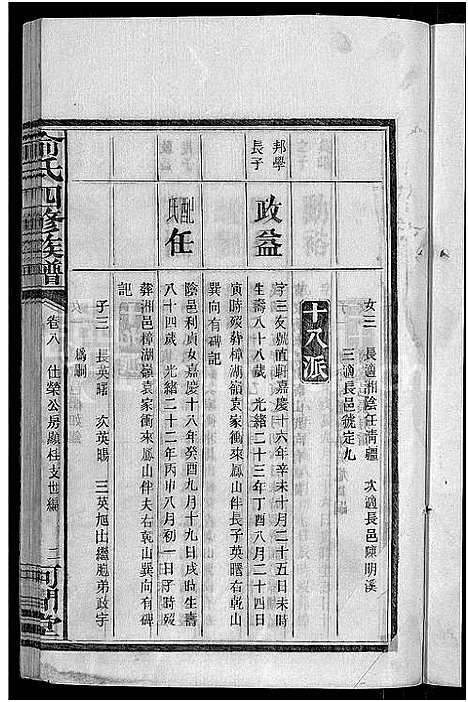 女三　長適湘陰任清疆　次適長邑陳明溪
三適長邑號定九
十八派
邦學
長子
政益
字三友號直軒嘉慶十六年辛未十月二十五日未時
生壽八十八歲　光緒二十三年丁酉八月二十四日
寅時歿葬樟湖嶺袁家衝來鳳山伴長子英曙右乾山
巽向有碑記
配任
氏
陰邑利貞女嘉慶十八年癸酉九月十九日戌時生壽
八十四歲　光緒二十二年丙申八月初一日子時歿
葬湘邑樟湖嶺袁家衝來鳳山伴夫右乾山巽向有碑
記
子三　長英曙　次英賜　三英旭出繼胞弟政字
爲嗣
俞氏四修族譜
卷八　仕榮公房顯柱支世編
二
可閒堂